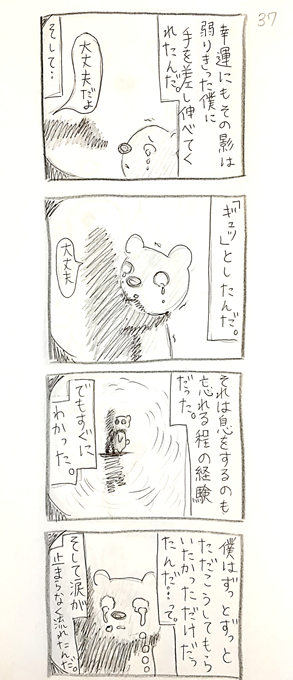 37
幸運にもその影は
弱りきった僕に
手を差し伸べてく
れたんだ。
大丈夫だよ
そして…
「ギュッ」としたんだ。
大丈夫
それは息をするのも
忘れる程の経験
だった。
でもすぐに
わかった。
僕はずっとずっと
ただこうしてもら
いたかっただけだっ
たんだ…って。
そして涙が
止まらなく流れたんだ。